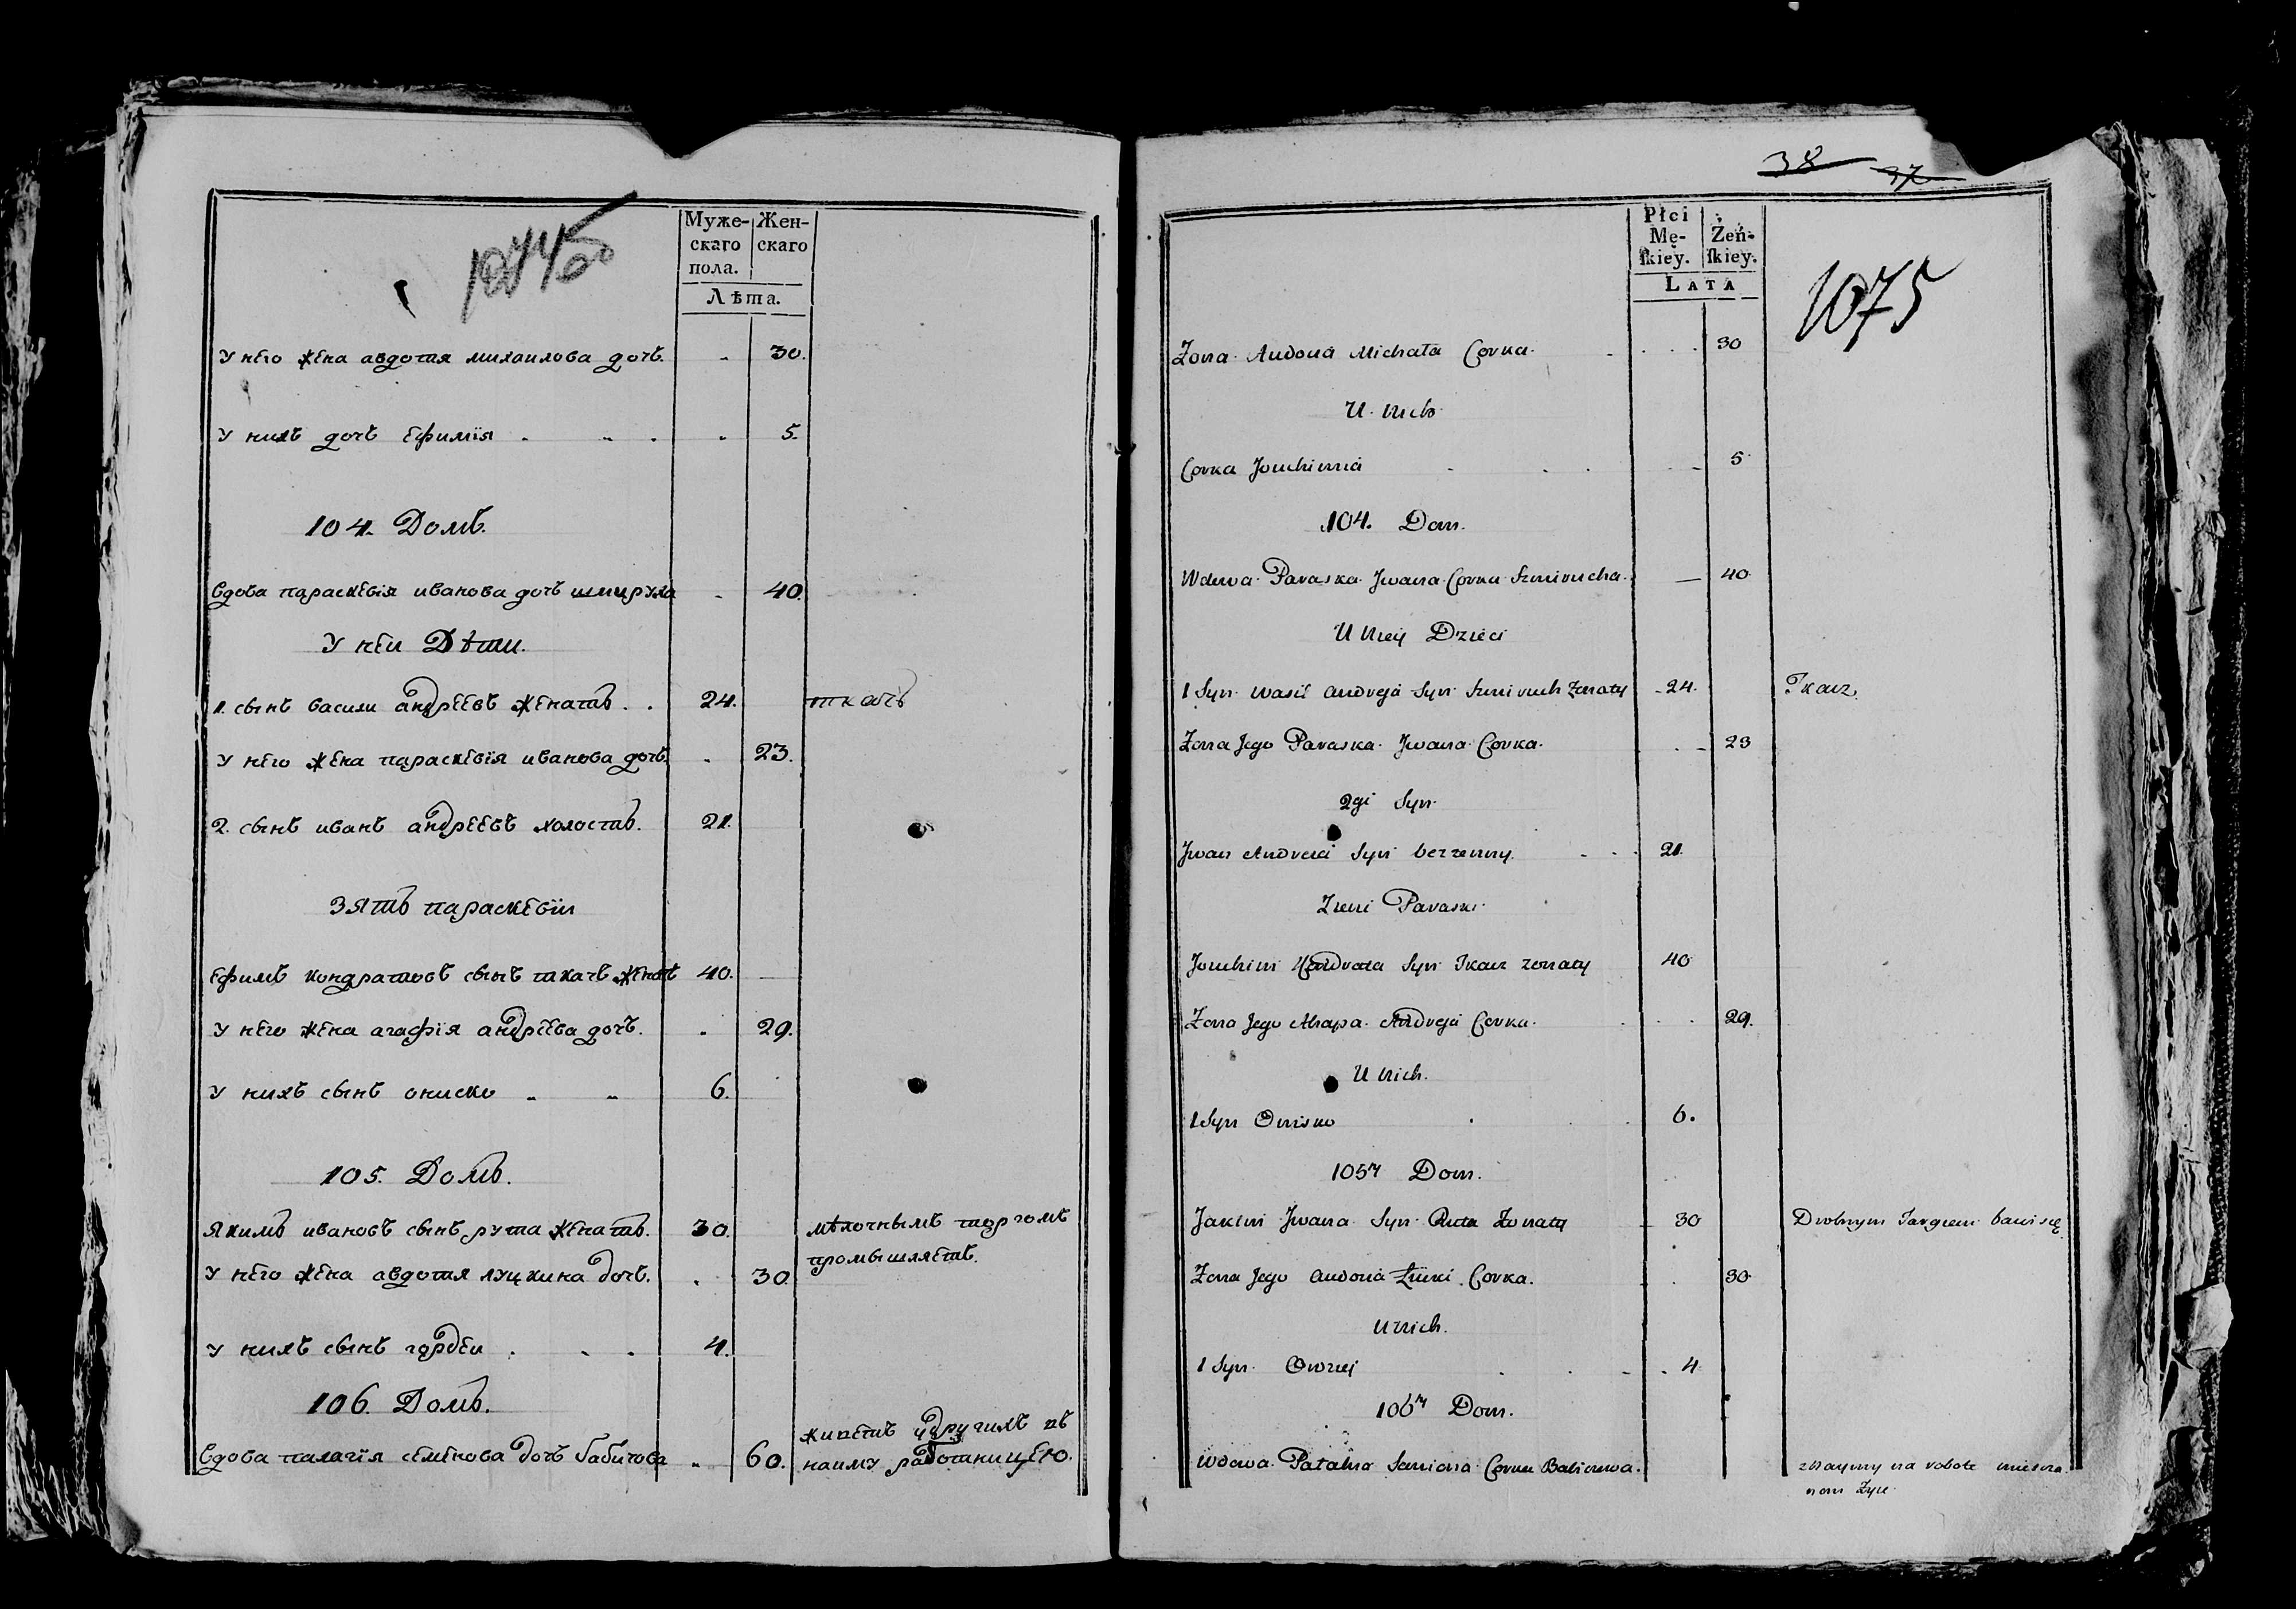 1074 об
Муже- Жен-
скаго скаго
пола.
Лѣта.
У него жена авдотия михаилова дочь. 30.
У нихъ дочь Ефимїя 5.
104. Домъ.
Вдова параскевїя иванова дочь шмируха 40.
У неи Дѣти.
1. сынъ васили андрѣевъ женатъ 24. ткачь
У него жена параскевїя иванова дочь 23.
2. сынъ иванъ андрѣевъ холостъ. 21.
Зять параскевїи
Ефимъ кондратовъ сынъ ткачъ женатъ 40.
У него жена агафїя андрѣева дочь. 29.
У нихъ сынъ ониско 6.
105. Домъ.
Якимъ ивановъ сынъ рута женатъ. 30. мѣлочнымъ торгомъ
промышляетъ.
У него жена авдотия луцкина дочь. 30
У нихъ сынъ гордеи 4.
106. Домъ.
Вдова палагїя семенова дочь бабичова 60. живетъ у другихъ въ
наиму работницею.
38 37
Płci Żeń-
Mę- skiey.
skiey.
LATA
1075
Zona Audotia Michała Corka 30
U nich
Corka Jouchimia 5
104. Dom.
Wdowa Paraska Jwana Corka Szmirucha 40
U niey Dzieci
1 Syn Wasil Andreja Syn Szmiruch Zonaty 24. Tkacz.
Zona Jego Paraska Jwana Corka. 23
2gi Syn
Jwan Andreia Syn bezzenny. 21.
Zięć Paraski
Jouchim Kondrata Syn Tkacz zonaty 40
Zona Jego Ahapa Andreja Corka. 29.
U nich.
1 Syn Onisko 6.
105ty Dom.
Jakim Jwana Syn Ruta Zonaty 30 Drobnym Targiem bawi się
Zona Jego Audotia Łucki Corka. 30
U nich.
1 Syn 4
106ty Dom.
Wdowa Palahia Semiona Corka Babiczowa.